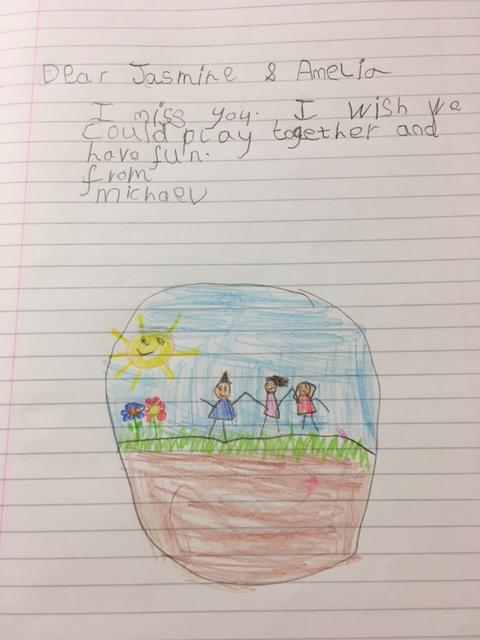 Dear Jasmine & Amelia
I miss you. I wish we
could play together and
have fun.
from
michael